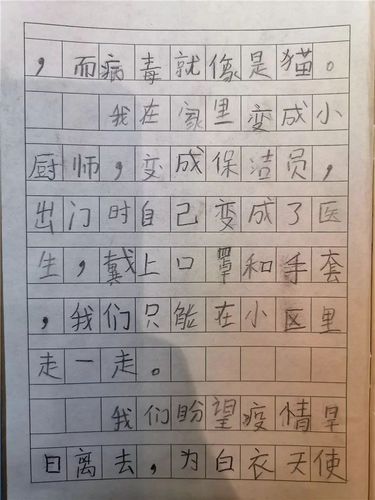 ，而病毒就像是猫。
我在家里变成小
厨师，变成保洁员，
出门时自己变成了医
生，戴上口罩和手套
，我们只能在小区里
走一走。
我们盼望疫情早
日离去，为白衣天使